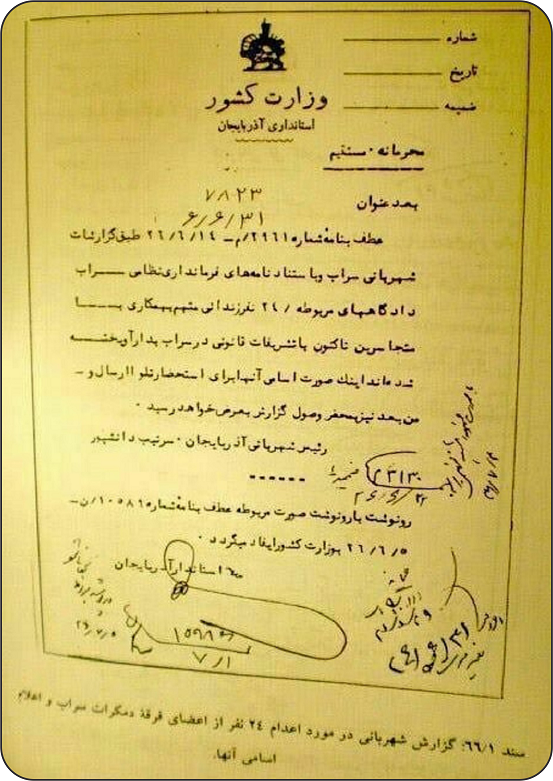 شماره
تاریخ
ضمیمه
وزارت کشور
استانداری آذربایجان
محرمانه - مستقیم
بعد عنوان
۷۸۲۳
۶/۶/۳۱
عطف بنامهٔ شماره ۲۹۶۱/م - ۲۶/۶/۱۴ طبق گزارشات
شهربانی سراب و باستناد نامه‌های فرمانداری نظامی سراب
دادگاههای مربوطه / ۲۴ نفر زندانی متهم بهمکاری با
متجاسرین تاکنون با تشریفات قانونی در سراب بدار آویخته
شده‌اند اینک صورت اسامی آنها برای استحضار تلوا ارسال و -
من بعد نیز بمحض وصول گزارش بعرض خواهد رسید ۰
رئیس شهربانی آذربایجان ۰ سرتیپ دانشپور
رونوشت با رونوشت صورت مربوطه عطف بنامهٔ شماره ۱۰۵۸۶/ن -
۲۶/۶/۵ بوزارت کشور ایفاد میگردد ۰
استاندار آذربایجان
۷/۱
سند ۶۶/۱: گزارش شهربانی در مورد اعدام ۲۴ نفر از اعضای فرقهٔ دمکرات سراب و اعلام
اسامی آنها.